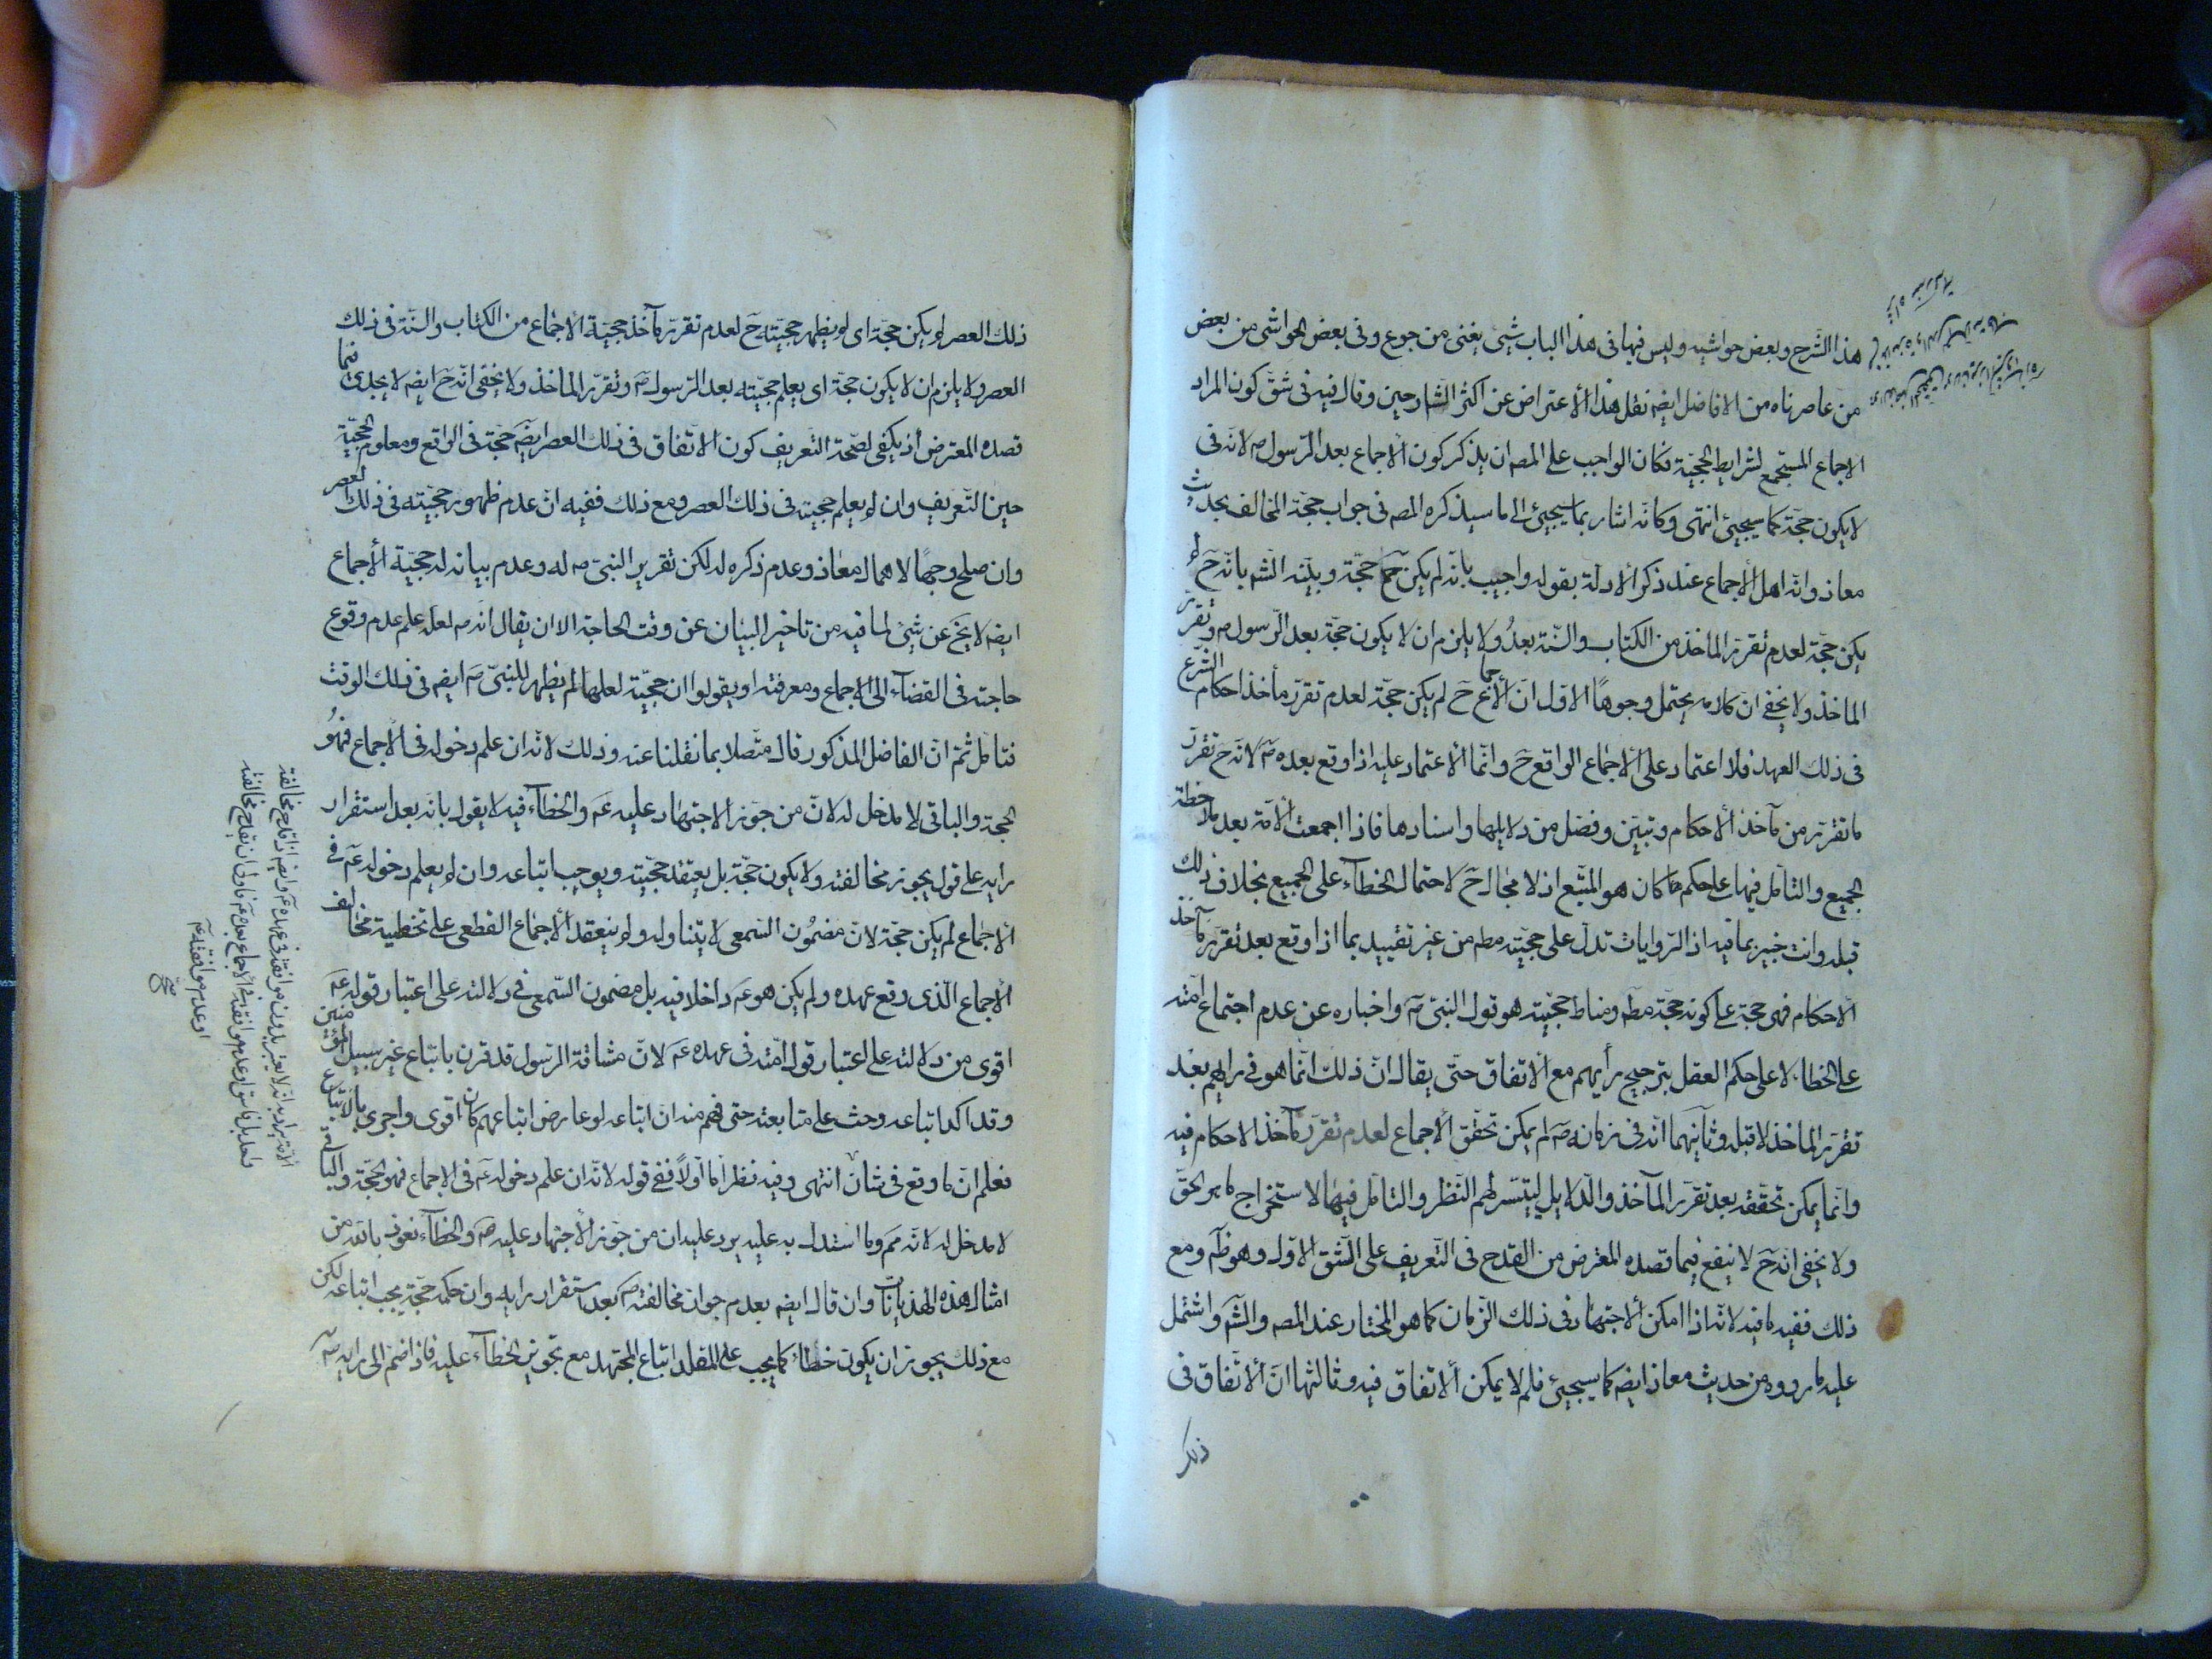 هذا الشرح وبعض حواشيه وليس فيها فى هذا الباب شيئ يغنى من جوع وفى بعض الحواشى من بعض
من عاصرناه من الافاضل ايضه نقل هذا الأعتراض عن اكثر الشارحين وقال فيه فى شق كون المراد
الاجماع المستجمع لشرايط الحجيّة فكان الواجب على المصه ان يذكر كون الأجماع بعد الرّسول صه لانّه فى
لا يكون حجّة كما سيجيئ انتهى وكانّه اشار بما سيجيئ الى ما سيذكره المصه فى جواب حجّة المخالف بحديث
معاذ وانّه اهمل الأجماع عند ذكر الادلّة بقوله واجيب بانّه لم يكن حَ حجّة وبيّنه الشه بانّه حَ لو
يكن حجّة لعدم تقرّر الماخذ من الكتاب والسّنة بعدُ ولا يلزم ان لا يكون حجّة بعد الرّسول صه وتقرّر
الماخذ ولا يخفى ان كلامه يحتمل وجوهًا الاوّل انّ الأجماع حَ لم يكن حجّة لعدم تقرّر مأخذ احكام الشرع
فى ذلك العهد فلا اعتماد على الأجماع الواقع حَ وانّما الأعتماد عليه اذا وقع بعده صَ لانّه حَ تقرّر
ما تقرّر من مآخذ الأحكام وتبيّن وفصّل من دلايلها واسنادها فاذا اجمعت الأمّة بعد ملاحظة
الجميع والتامّل فيها على حكم ما كان هو المتّبع اذ لا مجال حَ لاحتمال الخطآء على الجميع بخلاف ذلك
قبله وانت خبير بما فيه اذ الرّوايات تدلّ على حجيّته مطه من غير تقييد بما اذا وقع بعد تقرّر مآخذ
الأحكام فهى حجة على كونه حجّة مطه ومناط حجيّته هو قول النبىّ صَ واخباره عن عدم اجتماع امّته
على الخطاء لا على حكم العقل بترجيح رأيهم مع الأتفاق حتّى يقال انّ ذلك انّما هو فى رايهم بعد
تقرّر الماخذ لا قبله وثانيهما انّه فى زمانه صَ لم يمكن تحقّق الأجماع لعدم تقرّر مآخذ الاحكام فيه
وانّما يمكن تحقّقه بعد تقرّر المآخذ والدّلايل ليتيسّر لهم النّظر والتامّل فيها لاستخراج ما هو الحقّ
ولا يخفى انّه حَ لا ينفع فيما قصده المعترض من القدح فى التّعريف على الشّق الاوّل وهو ظَه ومع
ذلك ففيه ما فيه لانّه اذا امكن الأجتهاد فى ذلك الزّمان كما هو المختار عند المصه والشَه واشتمل
عليه ما رووه من حديث معاذ ايضه كما سيجيئ فلم لا يمكن الأتفاق فيه وثالثها انّ الأتّفاق فى
ذلك
ذلك العصر لو يكن حجّة اى لو يظهر حجيّته حَ لعدم تقرّر مآخذ حجيّة الأجماع من الكتاب والسّنّة فى ذلك
العصر ولا يلزم ان لا يكون حجّة اى يعلم حجيّته بعد الرّسول صَ وتقرّر الماخذ ولا يخفى انّه حَ ايضه لا يجدى فيما
قصده المعترض أذ يكفى لصّحة التّعريف كون الاتّفاق فى ذلك العصر ايضَه حجّة فى الواقع ومعلوم الحجيّة
حين التّعريف وان لو يعلم حجيّته فى ذلك العصر ومع ذلك ففيه انّ عدم ظهور حجيّته فى ذلك العصر
وان صلح وجهًا لاهمال معاذ وعدم ذكره له لكن تقرير النبىّ صه له وعدم بيانه له حجيّة الأجماع
ايضه لا يخ عن شيئ لما فيه من تاخير البيان عن وقت الحاجة الا ان يقال انه صه لعلّه علم عدم وقوع
حاجته فى القضآء الى الاجماع ومعرفته او يقولوا ان حجيّته لعلها لم يظهر للنبىّ صَ ايضه فى ذلك الوقت
فتامّل ثمّ انّ الفاضل المذكور قال متّصلا بما نقلنا عنه وذلك لانّه ان علم دخوله فى الأجماع فهوُ
الحجة والباقى لا مدخل له لانّ من جوّز الاجتهاد عليه عَم والخطآء فيه لا يقول بانّه بعد استقرار
رايه على قول يجوز مخالفته ولا يكون حجّة بل يعتقد حجيّته ويوجب اتباعه وان لو يعلم دخوله عَم فى
الأجماع لم يكن حجّة لانّ مضمُون السّمعى لا يتناوله ولو ينعقد الأجماع القطعى على تخطية مخالف
الأجماع الّذى وقع عهده ولم يكن هو عَم داخلا فيه بل مضمون السّمعى فى دلالته على اعتبار قوله عَم
اقوى من دلالته على اعتبار قول امّته فى عهده عَم لانّ مشاقة الرّسول قد قرن باتباع غير سبيل المؤمنين
وقد اكد اتباعه وحث على متابعته حتى فهم منه انّ اتباعه لو عارض اتباعهم كان اقوى واحرى بالاتباع
فعلم انّ ما وقع فى شان انتهى وفيه نظر امّا اوّلاً ففى قوله لانّه ان علم دخوله عَم فى الاجماع فهو الحجّة والباقى
لا مدخل له لانّه مم وما استدل به عليه يرد عليه ان من جوّز الأجتهاد عليه صَ والخطآء نعوذ بالله من
امثال هذه الهذيانات وان قال ايضه بعدم جواز مخالفته صَ بعد استقرار رايه وان حكمه حجّة يجب اتباعه لكن
مع ذلك يجوز ان يكون خطأ كما يجب على المقلد اتباع المجتهد مع تجويز الخطآء عليه فاذا ضمّ الى رايه صَ
او عدم موافقته عَم
صح